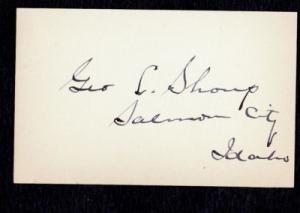 Geo L. Shoup
Salmon City
Idaho